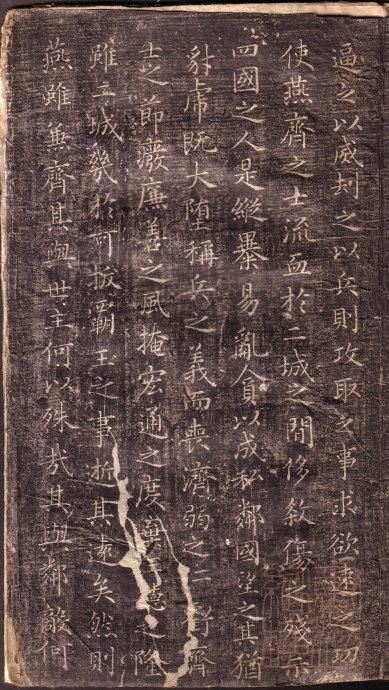 逼之以威刧之以兵則攻取之事求欲速之功
使燕齊之士流血於二城之間侈殺傷之殘示
四國之人是縱暴易亂貪以成私鄰國望之其猶
豺虎既大堕稱兵之義而喪濟弱之仁虧齊
士之節廢廉善之風掩宏通之度棄王德之隆
雖二城幾於可拔霸王之事逝其遠矣然則
燕雖兼齊其與世主何以殊哉其與鄰敵何